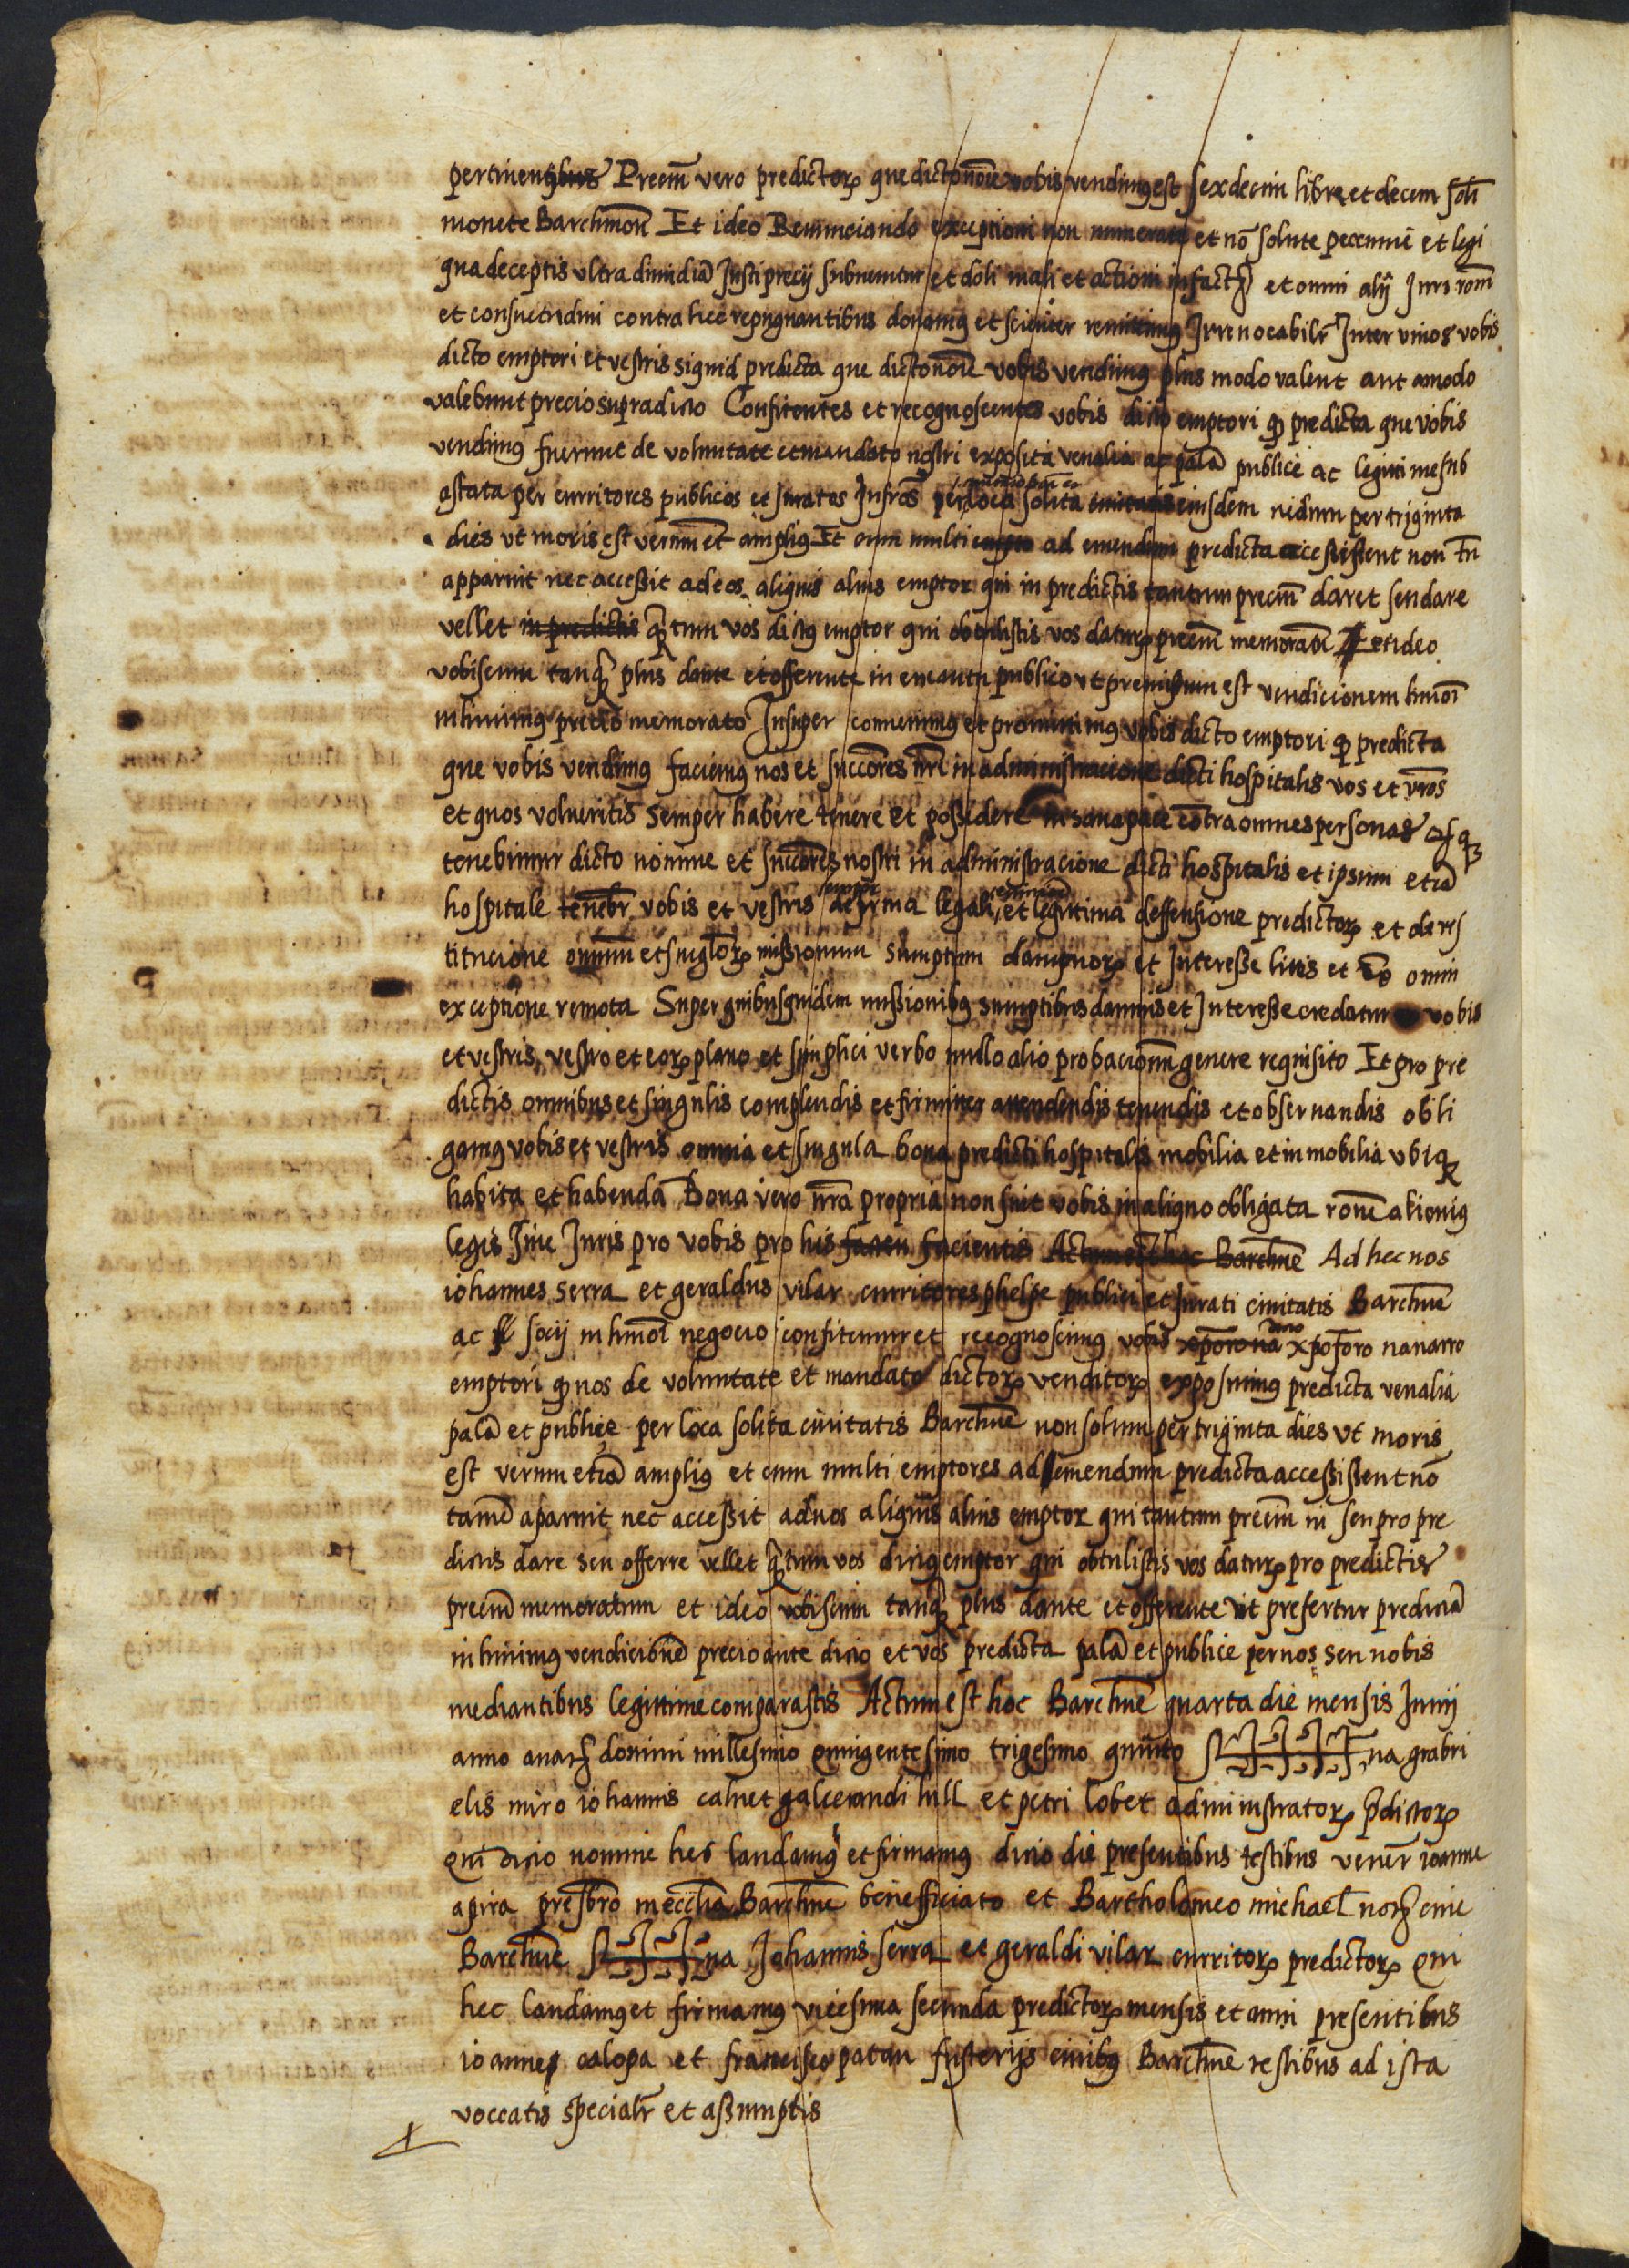 pertinentibus Precm̄ vero predictoꝝ que dicto noīe vobis vendimꝰ est sexdecim libre et decem solī
monete Barchmoñ Et ideo Renunciando exceptioni non numerate et nō solute peccunie et legi
qua deceptis vltra dimidiā Justi precij subuenitur et doli mali et actioni infactū et omni alij Juri romī
et consuetudini contra hec repugnantibus donamus et scienter remittimꝰ Irreuocabilr̄ Inter viuos vobis
dicto emptori et vestris siquid predicta que dicto noīe vobis vendimꝰ plus modo valent aut amodo
valebunt precio supradicto Confitentes et recognoscentes vobis dicto emptori ꝙ predicta que vobis
vendimꝰ fuerunt de voluntate et mandato nostri exposita venalia ac palā publice ac legitime sub
astata per curritores publicos et Juratos Infros̄ per loca solita ciuitatis eiusdem nedum per triginta
dies vt moris est verum et̄ampliꝰ Et cum multi ad emendum predicta accessissent non tn̄
apparuit nec accessit ad eos aliquis alius emptor qui in predictis tantum precm̄ daret seu dare
vellet in predictis ꝙtum vos dictꝰ emptor qui obtulistis vos daturꝝ precm̄ memoratū Et ideo
vobiscum tanꝙ plus dante et offerente in encantu publico vt premissum est vendicionem hmōi
inhiuimꝰ precio memorato Insuper conuenimꝰ et promittimꝰ vobis dicto emptori ꝙ predicta
que vobis vendimꝰ faciemꝰ nos et succōres nr̄i in administracione dicti hospitalis vos et vr̄os
et quos volueritis semper habere tenere et possidere in sana pace cōtra omnes personas atqꝫ
tenebimur dicto nomine et succōres nostri in administracione dicti hospitalis et ipsum etiā
hospitale tenebr̄ vobis et vestris de firma legali, et legittima deffensione predictoꝝ et de res
titucione omnium et singloꝝ missionum sumptum dampnoꝝ et Interesse litis et exᵃ omni
exceptione remota Super quibusquidem missionibꝰ sumptibus damnis et Interesse credatur vobis
et vestris, vestro et eoꝝ plano et simplici verbo nullo alio probacionū genere requisito Et pro pre
dictis omnibus et singulis complendis et firmiter attendendis tenendis et obseruandis obli
gamꝰ vobis et vestris omnia et singula bona predicti hospitalis mobilia et immobilia vbiqꝫ
habita et habenda Bona vero nr̄a propria non sint vobis in aliquo obligata ronē alicuiꝰ
legis siue Juris pro vobis pro his facientis Actum est hoc Barchn̄e Ad hec nos
iohannes serra et geraldus vilar curritores phelpe publici et Jurati ciuitatis Barchn̄e
ac socij in hmōi negocio confitemur et recognoscimꝰ vobis dicto xpōforo nauarro
emptori ꝙ nos de voluntate et mandato dictoꝝ venditoꝝ exposuimꝰ predicta venalia
palā et publice per loca solita ciuitatis Barchn̄e non solum per triginta dies vt moris
est verum etiā ampliꝰ et cum multi emptores ad emendum predicta accessissent nō
tamē aparuit nec accessit ad nos aliquis alius emptor qui tantum precm̄ in seu pro pre
dictis dare seu offerre vellet ꝙtum vos dictꝰ emptor qui obtulistis vos daturꝝ pro predictis
precm̄ memoratum et ideo vobiscum tanꝙ plus dante et offerente vt prefertur predictā
inhiuimꝰ vendicionē precio ante dicto et vos predicta palā et publice per nos seu nobis
mediantibus legittime comparastis Actum est hoc Barchn̄e quarta die mensis Junij
anno a natꝫ domini millesimo quingentesimo trigesimo quinto S++++na gabri
elis miro iohannis caluet galcerandi lull et petri lobet administratoꝝ p̄dictoꝝ
Qui dicto nomine hec laudamꝰ et firmamꝰ dicto die presentibus testibus vener̄ ioanne
apira presbr̄o in ecclīa Barchn̄e benefficiato et Bartholomeo michael notꝫ ciue
Barchn̄e S+++na Johannis serra et geraldi vilar curritoꝝ predictoꝝ Qui
hec laudamꝰ et firmamꝰ vicesima secunda predictoꝝ mensis et anni presentibus
ioanne calopa et francisco patau fusterijs ciuibꝰ Barchn̄e testibus ad ista
voccatis specialr̄ et assumptis